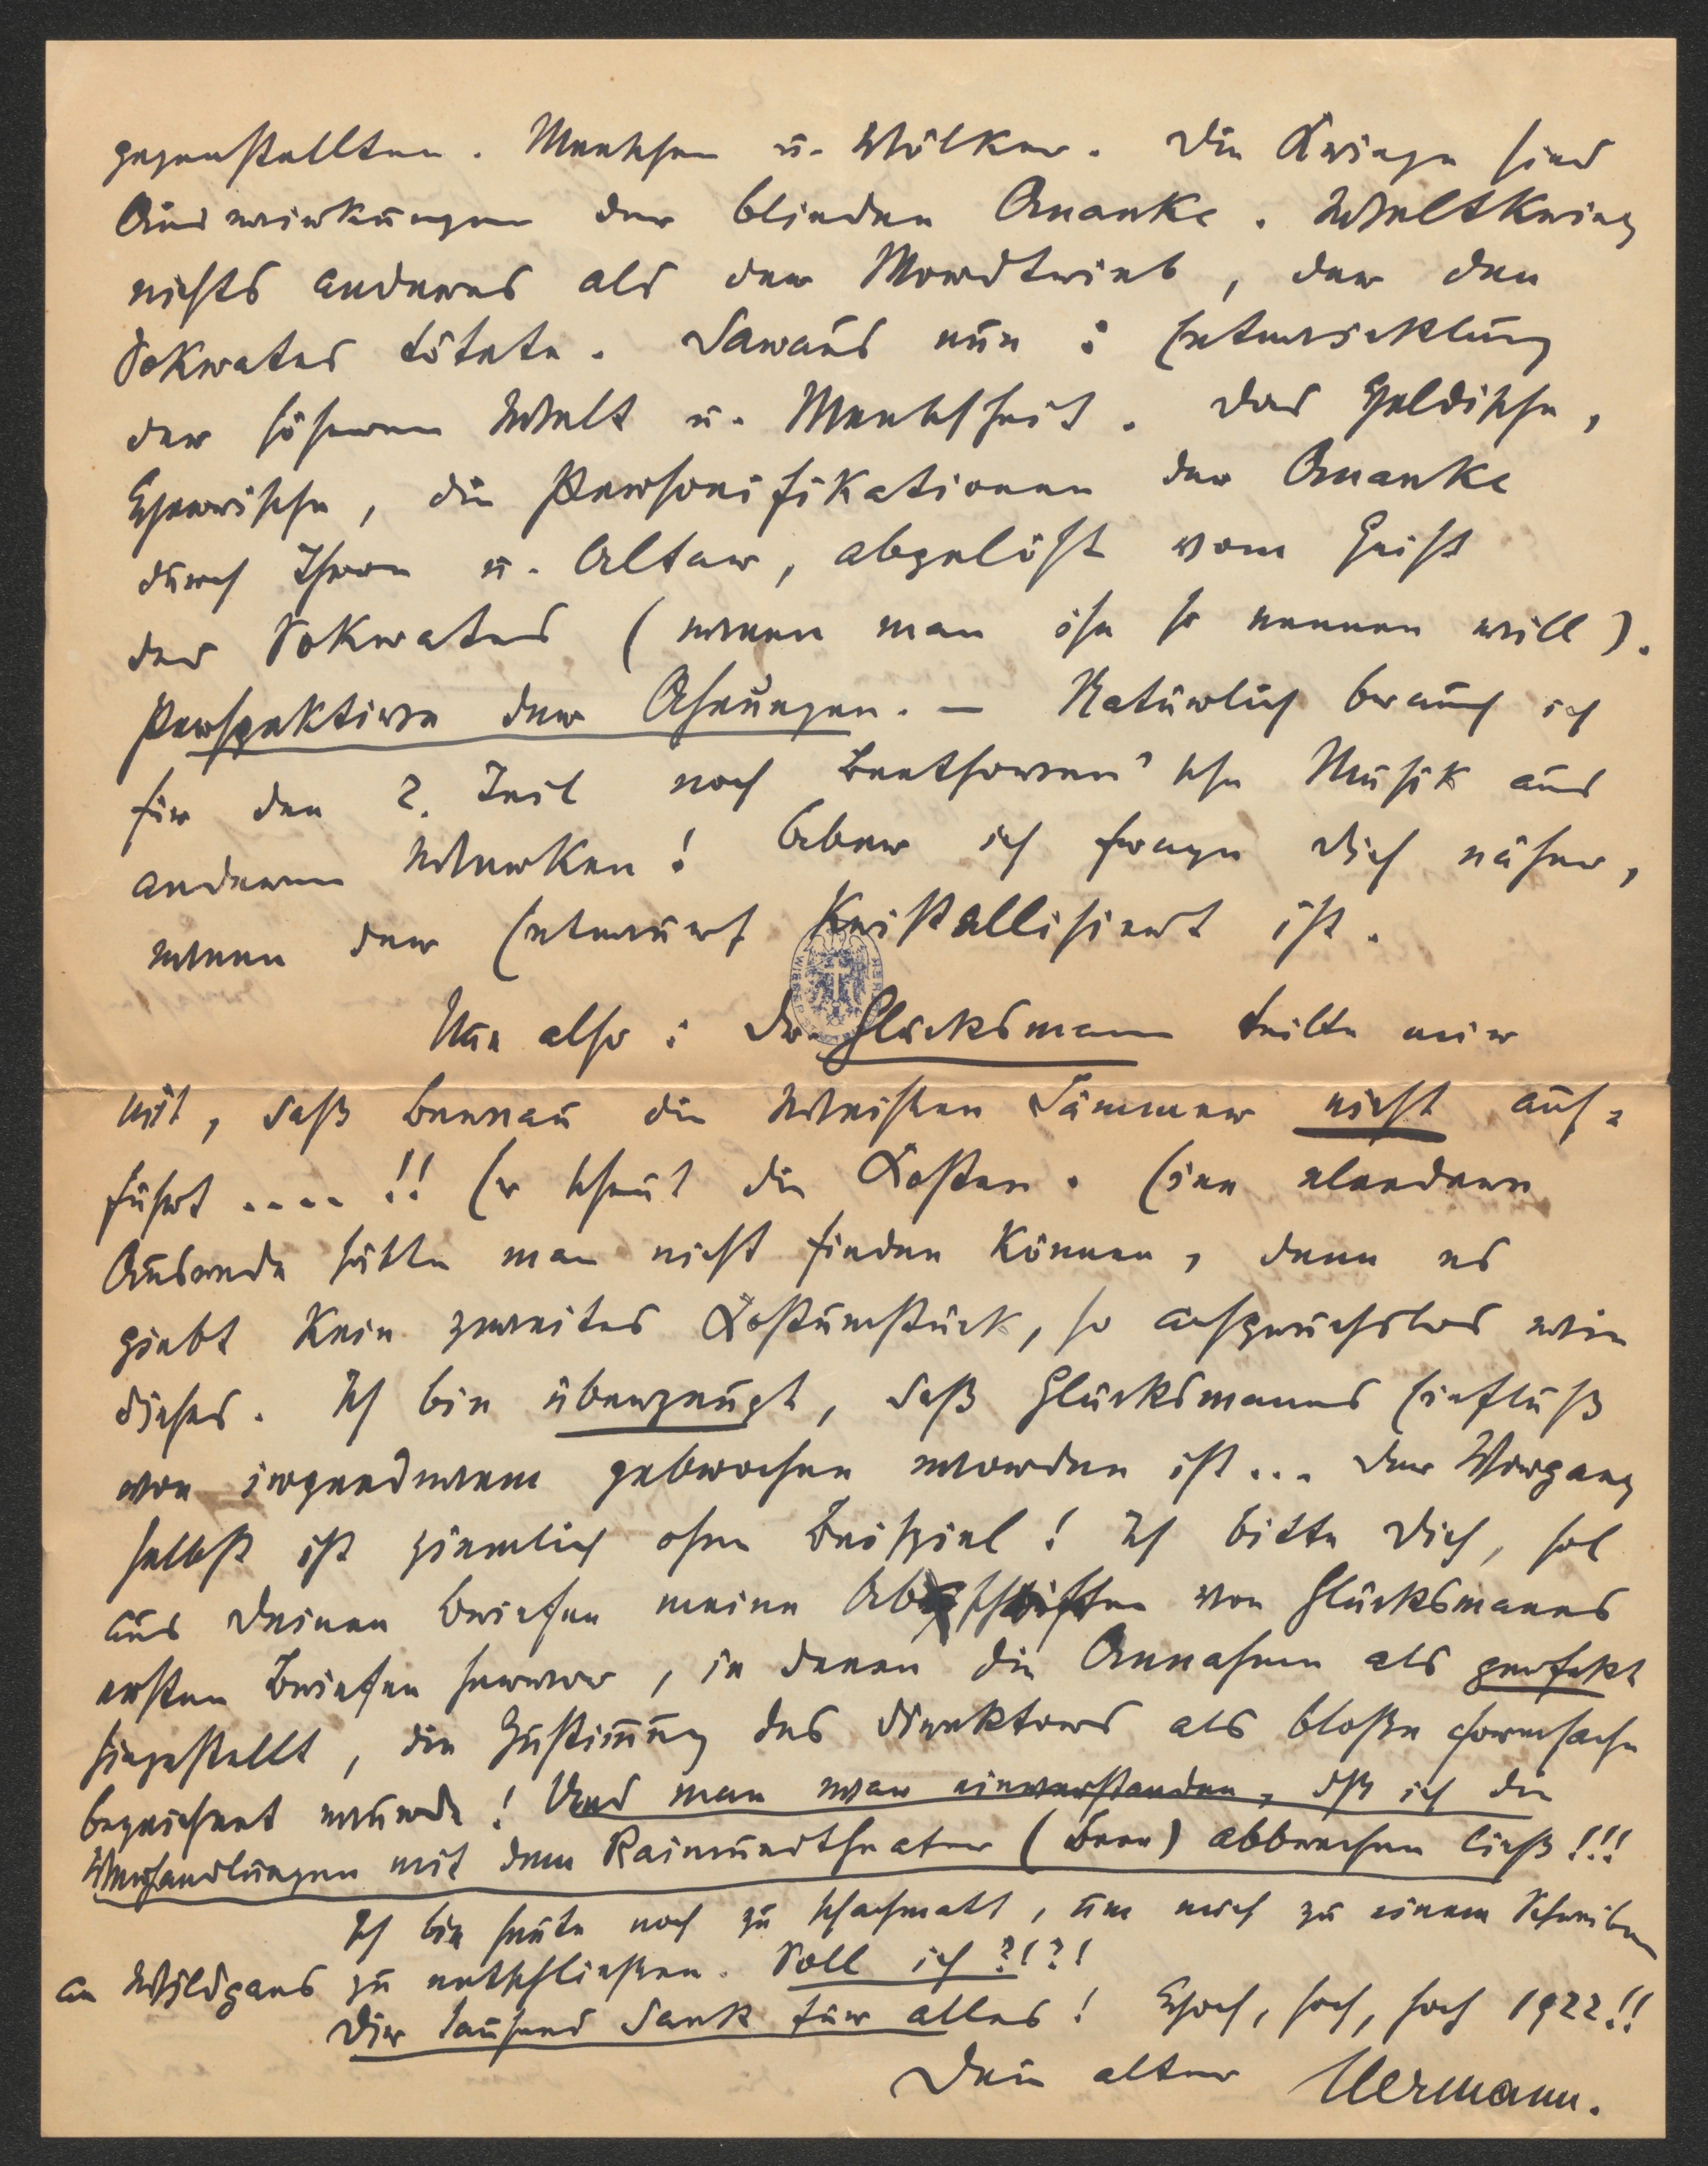 gegenstellten. Menschen u. Völker. Die Kriege sind
Auswirkungen der blinden Ananke. Weltkrieg
nichts anderes als der Mordtrieb, der den
Sokrates tötete. Daraus nun: Entwicklung
der höheren Welt u. Menschheit. Das Heldische,
Herrische, die Personifikationen der Ananke
durch Thron u. Altar, abgelöst vom Geist
des Sokrates (wenn man ihn so nennen will).
Perspektive der Ahnungen. — Natürlich brauch ich
für den 2. Teil noch Beethoven'sche Musik aus
anderen Werken! Aber ich frage Dich näher,
wenn der Entwurf kristallisiert ist.
Nun also: Dr. Glücksmann teilte mir
mit, daß Bernau die Weisten Dämmer nicht auf=
führt .... !! Er scheut die Kosten. Eine elendere
Ausrede hätte man nicht finden können, denn es
giebt kein zweites Kostümstück, so anspruchslos wie
dieses. Ich bin überzeugt, daß Glücksmanns Einfluß
von irgendwem gebrochen worden ist... Der Vorgang
selbst ist ziemlich ohne Beispiel! Ich bitte Dich, hol
aus Deinen Briefen meine Abschriften von Glücksmanns
ersten Briefen hervor, in denen die Annahme als perfekt
hingestellt, die Zustimmung des Direktors als bloße Formsache
bezeichnet wurde! Und man war einverstanden, dß ich die
Verhandlungen mit dem Raimundtheater (Beer) abbrechen ließ!!!
Ich bin heute noch zu schachmatt, um mich zu einem Schreiben
an Wildgans zu entschließen. Soll ich?!?!
Dir tausend Dank für alles! Hoch, hoch, hoch 1922!!
Dein alter Hermann.